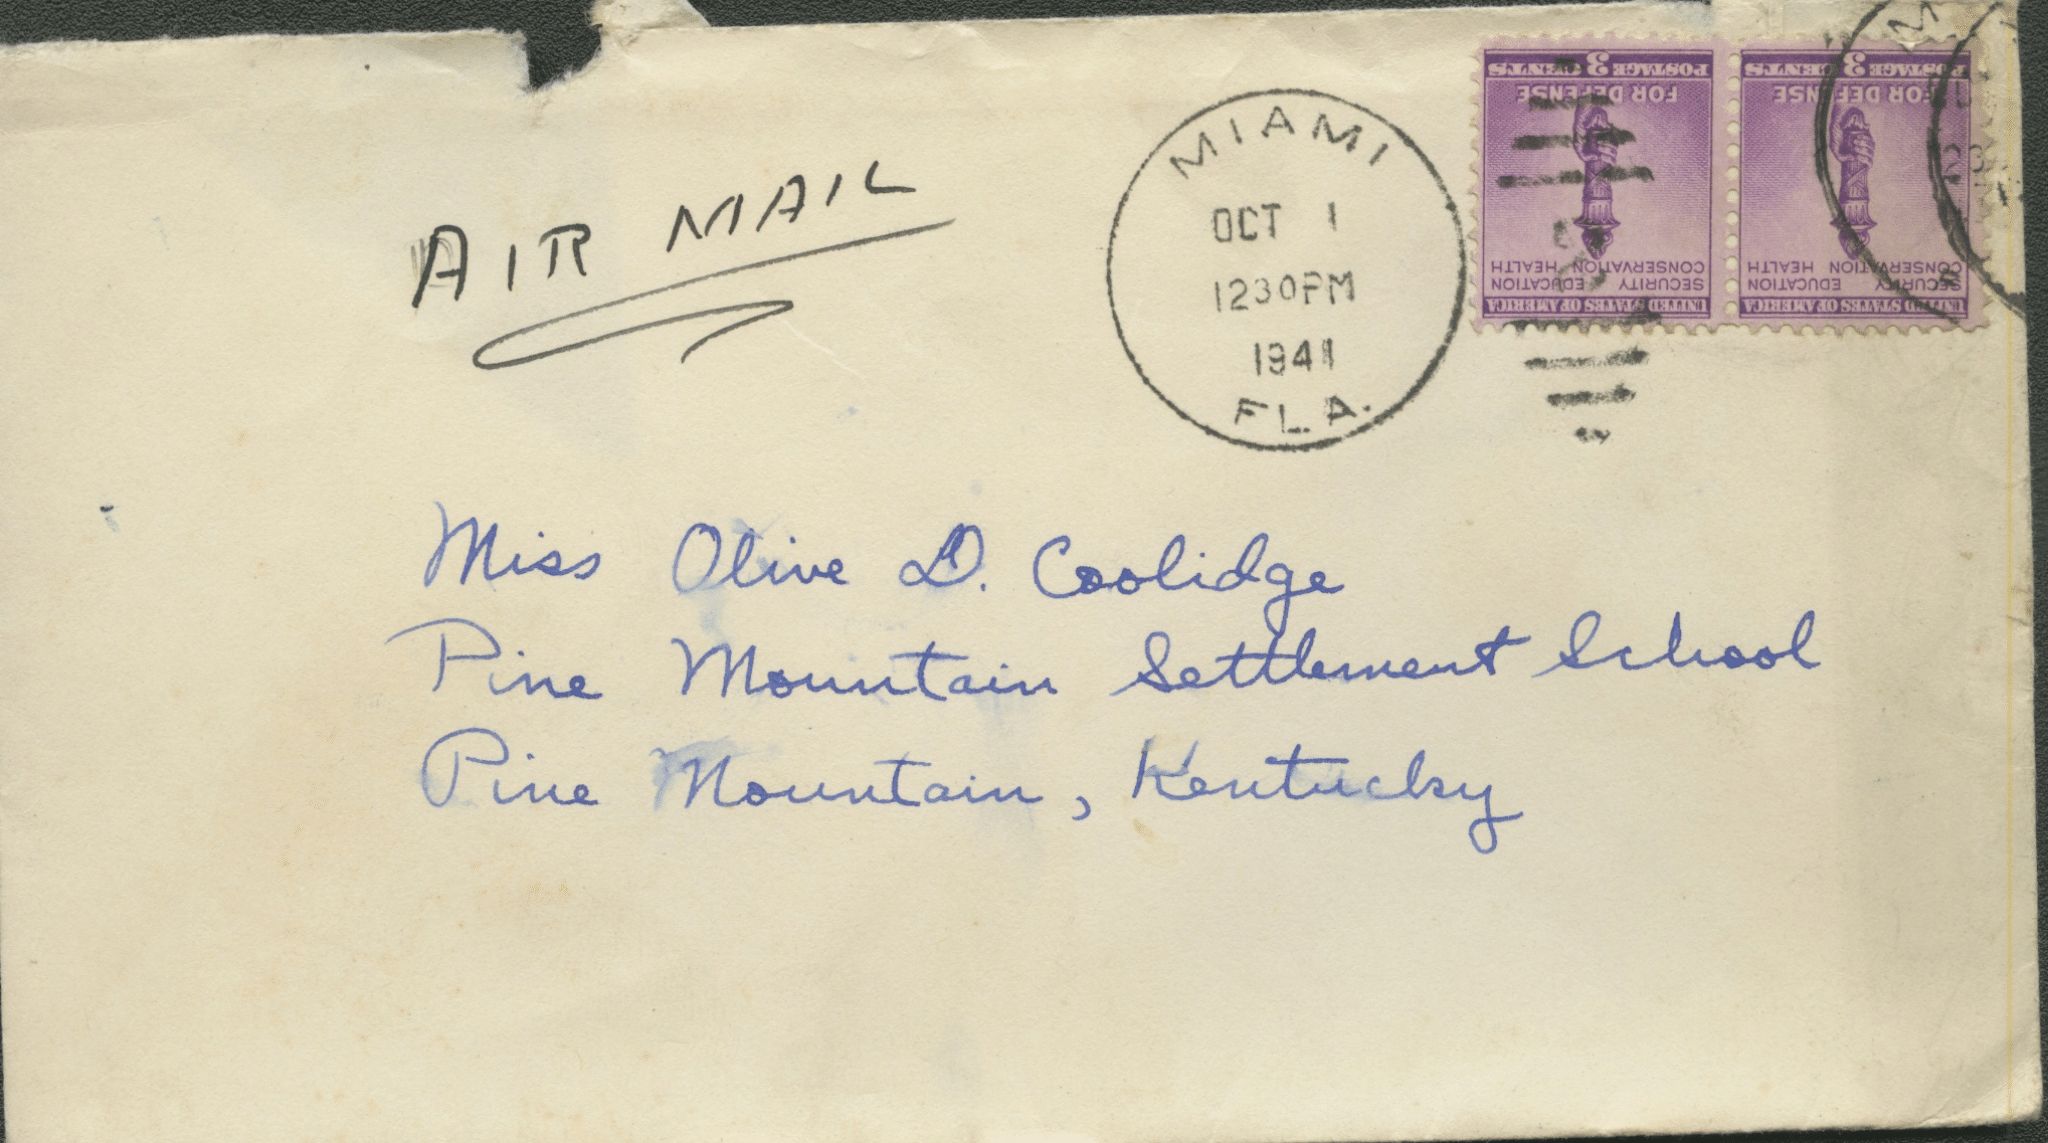 AIR MAIL
MIAMI
OCT 1
12 30 PM
1941
FLA.
POSTAGE 3 CENTS
FOR DEFENSE
SECURITY EDUCATION
CONSERVATION HEALTH
UNITED STATES OF AMERICA
POSTAGE 3 CENTS
FOR DEFENSE
SECURITY EDUCATION
CONSERVATION HEALTH
UNITED STATES OF AMERICA
Miss Olive D. Coolidge
Pine Mountain Settlement School
Pine Mountain, Kentucky